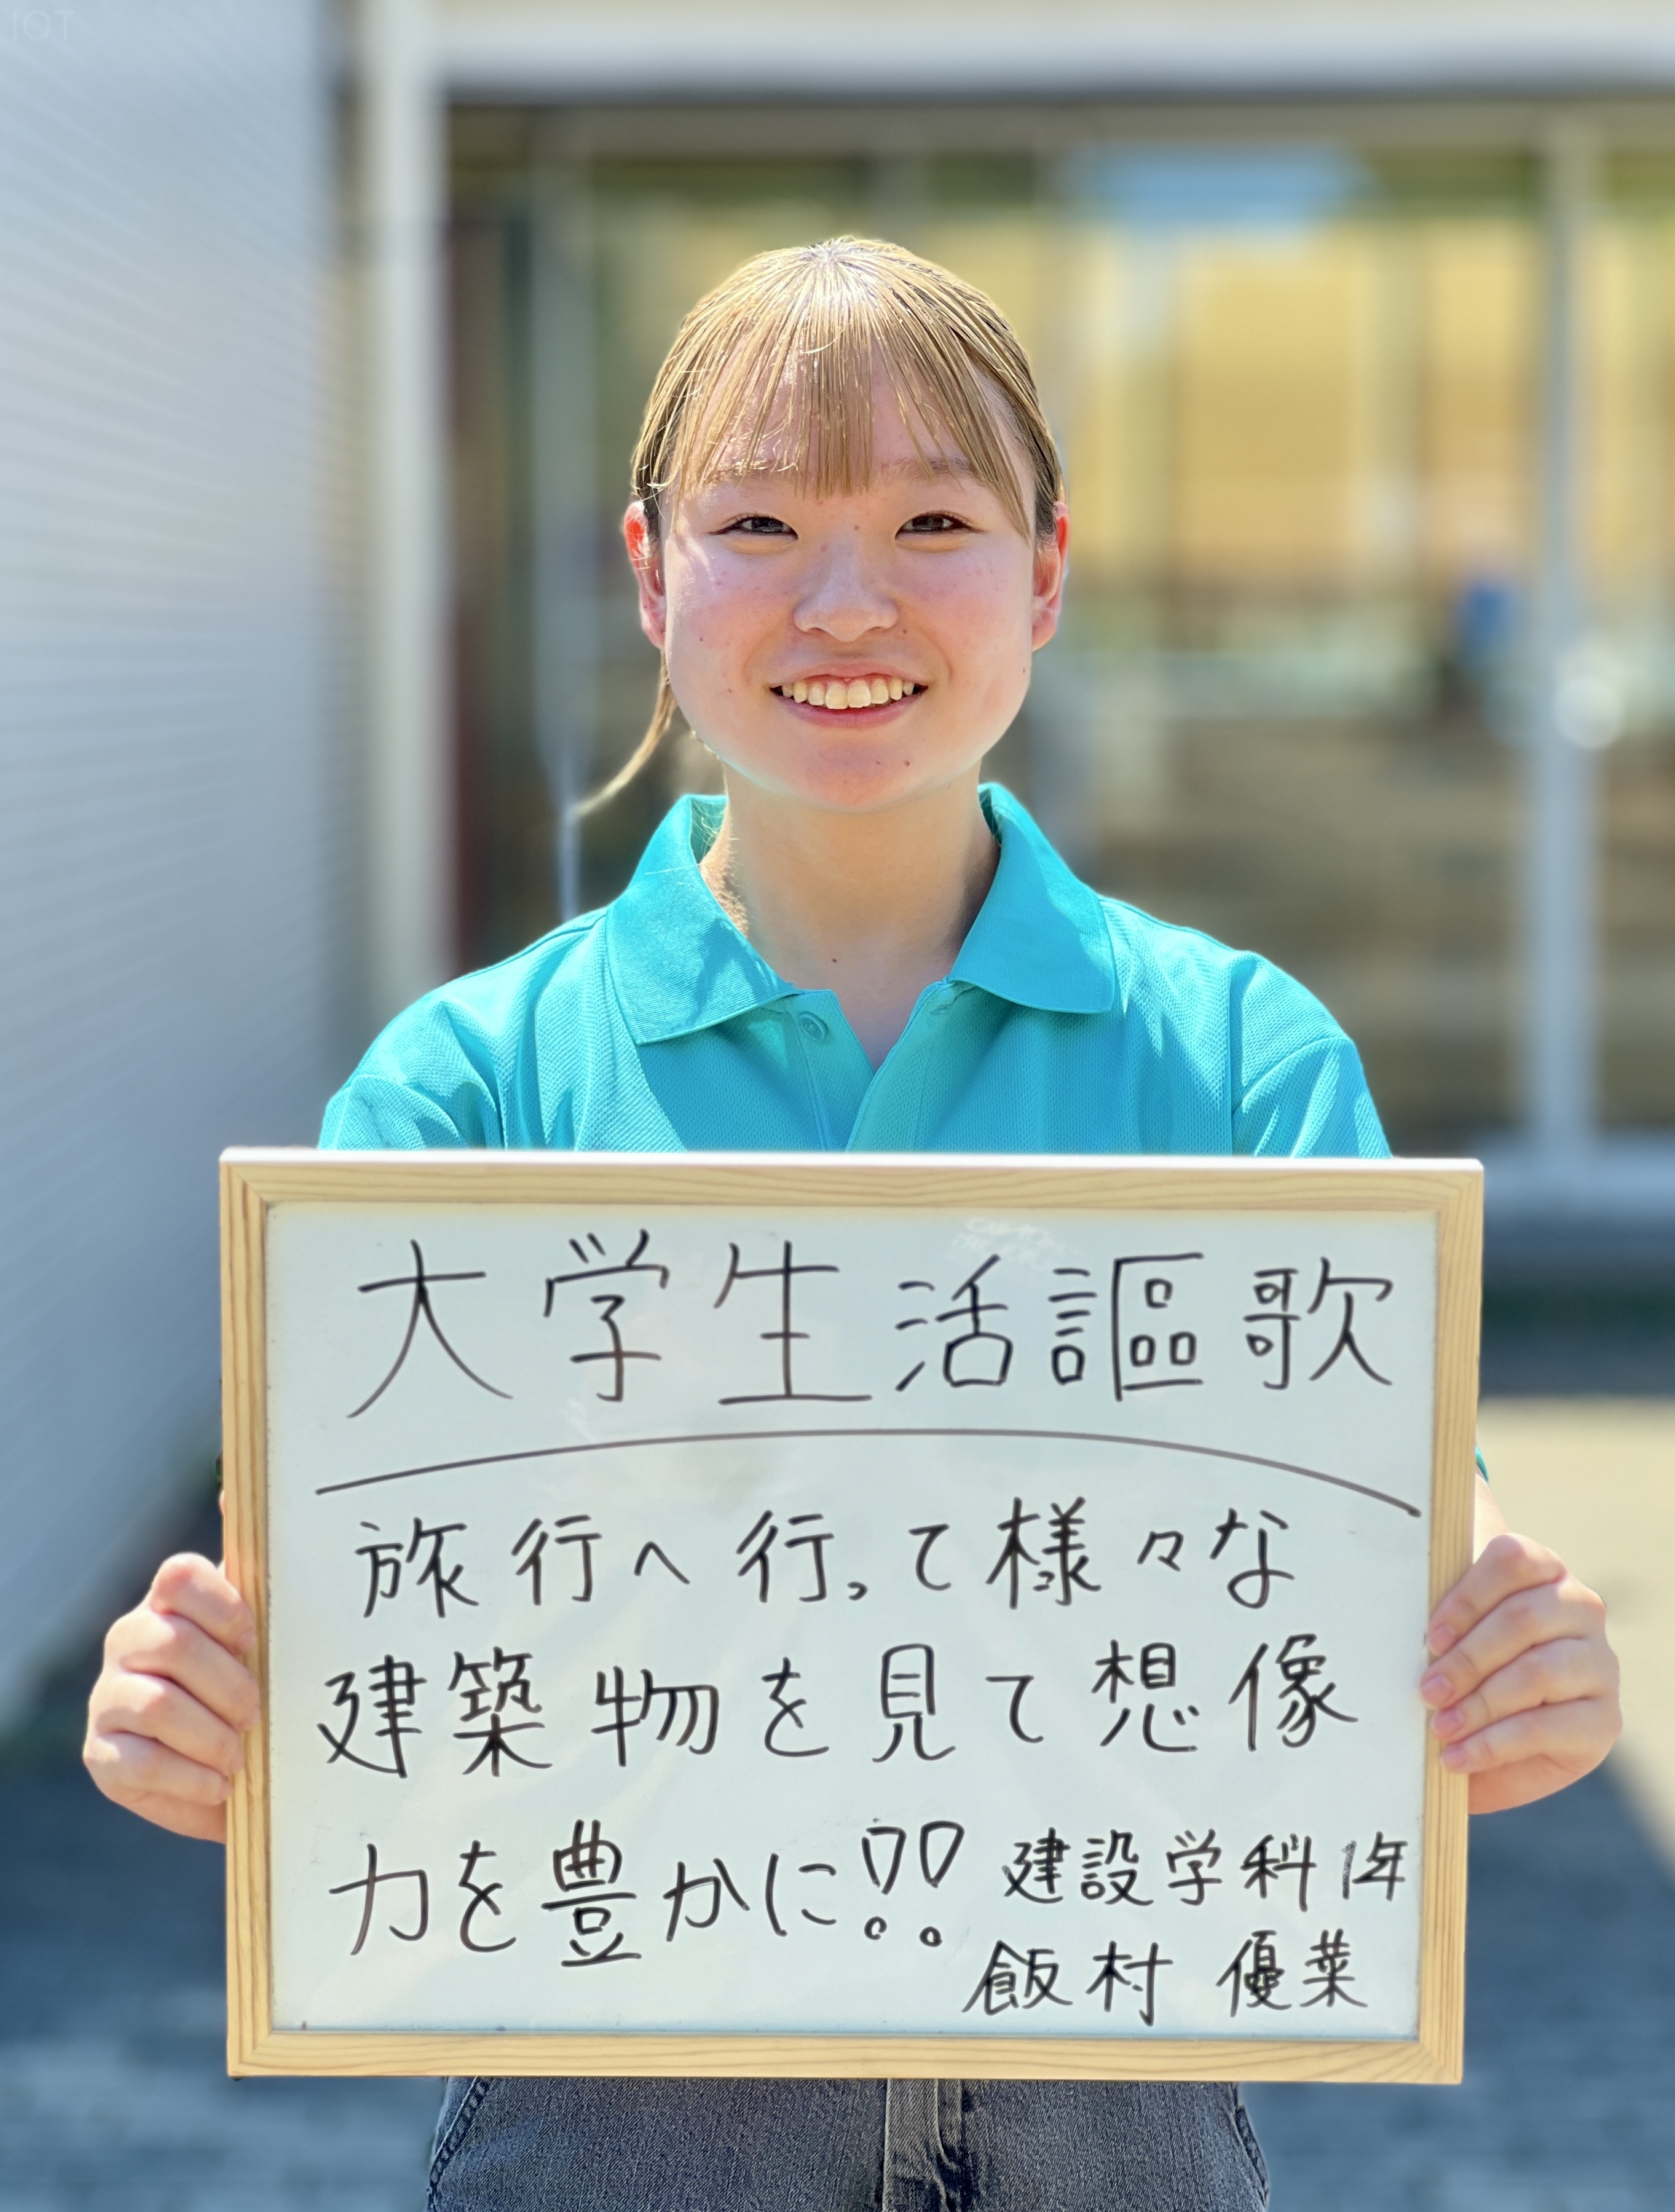 IOT
大学生活謳歌
旅行へ行って様々な
建築物を見て想像
力を豊かに!!
建設学科1年
飯村 優菜